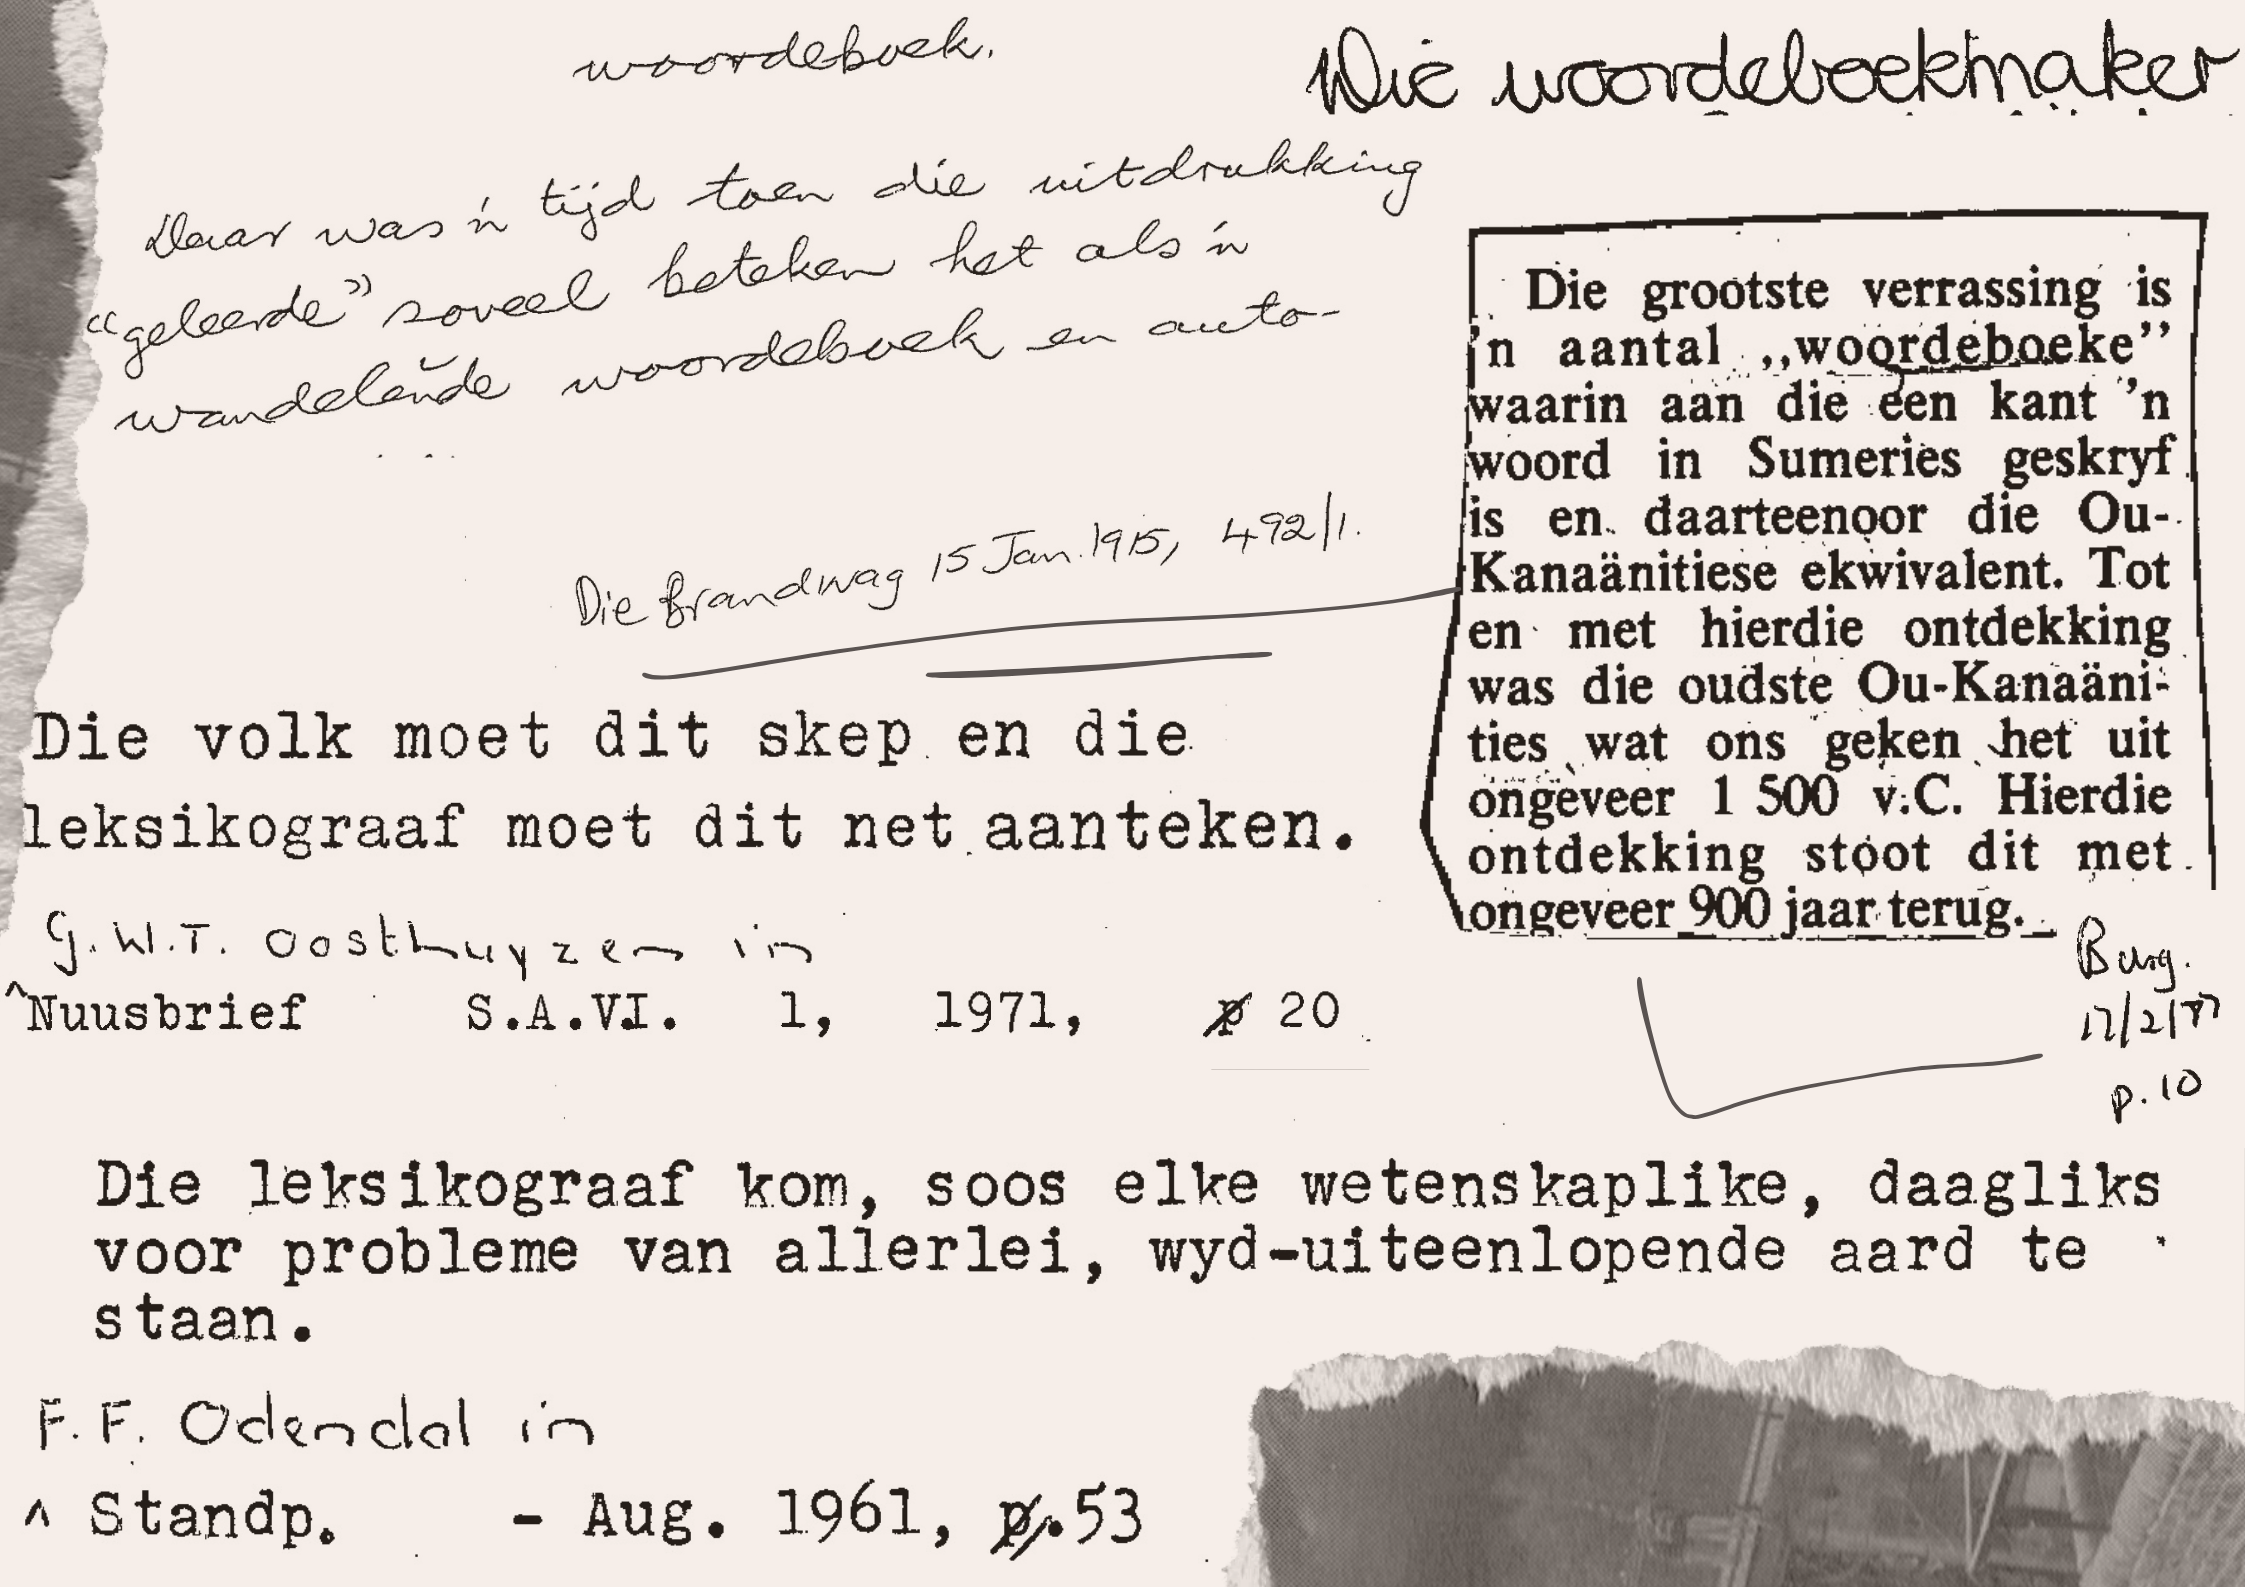 woordeboek.
Die woordeboekmaker
Daar was 'n tijd toen die uitdrukking
“geleerde” soveel beteken het als 'n
wandelende woordeboek en auto-
Die Brandwag 15 Jan. 1915, 492/1.
Die grootste verrassing is
'n aantal ,,woordeboeke”
waarin aan die een kant 'n
woord in Sumeries geskryf
is en daarteenoor die Ou-
Kanaänitiese ekwivalent. Tot
en met hierdie ontdekking
was die oudste Ou-Kanaäni-
ties wat ons geken het uit
ongeveer 1 500 v.C. Hierdie
ontdekking stoot dit met
ongeveer 900 jaar terug.
Burg.
17/2/77
p. 10
Die volk moet dit skep en die
leksikograaf moet dit net aanteken.
G.W.T. Oosthuyzen in
^Nuusbrief S.A.V.I. 1, 1971, p 20
Die leksikograaf kom, soos elke wetenskaplike, daagliks
voor probleme van allerlei, wyd-uiteenlopende aard te
staan.
F.F. Odendal in
^ Standp. - Aug. 1961, p.53